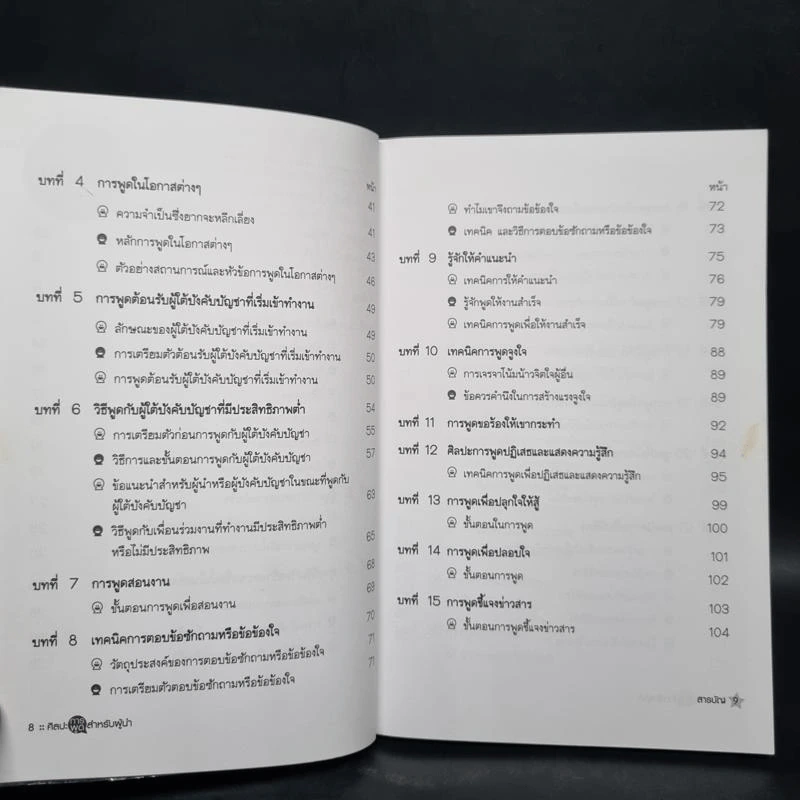 หน้า
บทที่ 4 การพูดในโอกาสต่างๆ 41
ความจำเป็นซึ่งยากจะหลีกเลี่ยง 41
หลักการพูดในโอกาสต่างๆ 43
ตัวอย่างสถานการณ์และหัวข้อการพูดในโอกาสต่างๆ 46
บทที่ 5 การพูดต้อนรับผู้ใต้บังคับบัญชาที่เริ่มเข้าทำงาน 49
ลักษณะของผู้ใต้บังคับบัญชาที่เริ่มเข้าทำงาน 49
การเตรียมตัวต้อนรับผู้ใต้บังคับบัญชาที่เริ่มเข้าทำงาน 50
การพูดต้อนรับผู้ใต้บังคับบัญชาที่เริ่มเข้าทำงาน 50
บทที่ 6 วิธีพูดกับผู้ใต้บังคับบัญชาที่มีประสิทธิภาพต่ำ 54
การเตรียมตัวก่อนการพูดกับผู้ใต้บังคับบัญชา 55
วิธีการและขั้นตอนการพูดกับผู้ใต้บังคับบัญชา 57
ข้อแนะนำสำหรับผู้นำหรือผู้บังคับบัญชาในขณะที่พูดกับ
ผู้ใต้บังคับบัญชา 63
วิธีพูดกับเพื่อนร่วมงานที่ทำงานมีประสิทธิภาพต่ำ
หรือไม่มีประสิทธิภาพ 65
บทที่ 7 การพูดสอนงาน 68
ขั้นตอนการพูดเพื่อสอนงาน 69
บทที่ 8 เทคนิคการตอบข้อซักถามหรือข้อข้องใจ 70
วัตถุประสงค์ของการตอบข้อซักถามหรือข้อข้องใจ 71
การเตรียมตัวตอบข้อซักถามหรือข้อข้องใจ 71
8 :: ศิลปะการพูดสำหรับผู้นำ
หน้า
ทำไมเขาจึงถามข้อข้องใจ 72
เทคนิค และวิธีการตอบข้อซักถามหรือข้อข้องใจ 73
บทที่ 9 รู้จักให้คำแนะนำ 75
เทคนิคการให้คำแนะนำ 76
รู้จักพูดให้งานสำเร็จ 79
เทคนิคการพูดเพื่อให้งานสำเร็จ 79
บทที่ 10 เทคนิคการพูดจูงใจ 88
การเจรจาโน้มน้าวจิตใจผู้อื่น 89
ข้อควรคำนึงในการสร้างแรงจูงใจ 89
บทที่ 11 การพูดขอร้องให้เขากระทำ 92
บทที่ 12 ศิลปะการพูดปฏิเสธและแสดงความรู้สึก 94
เทคนิคการพูดเพื่อปฏิเสธและแสดงความรู้สึก 95
บทที่ 13 การพูดเพื่อปลุกใจให้สู้ 99
ขั้นตอนในการพูด 100
บทที่ 14 การพูดเพื่อปลอบใจ 101
ขั้นตอนการพูด 102
บทที่ 15 การพูดชี้แจงข่าวสาร 103
ขั้นตอนการพูดชี้แจงข่าวสาร 104
สารบัญ 9